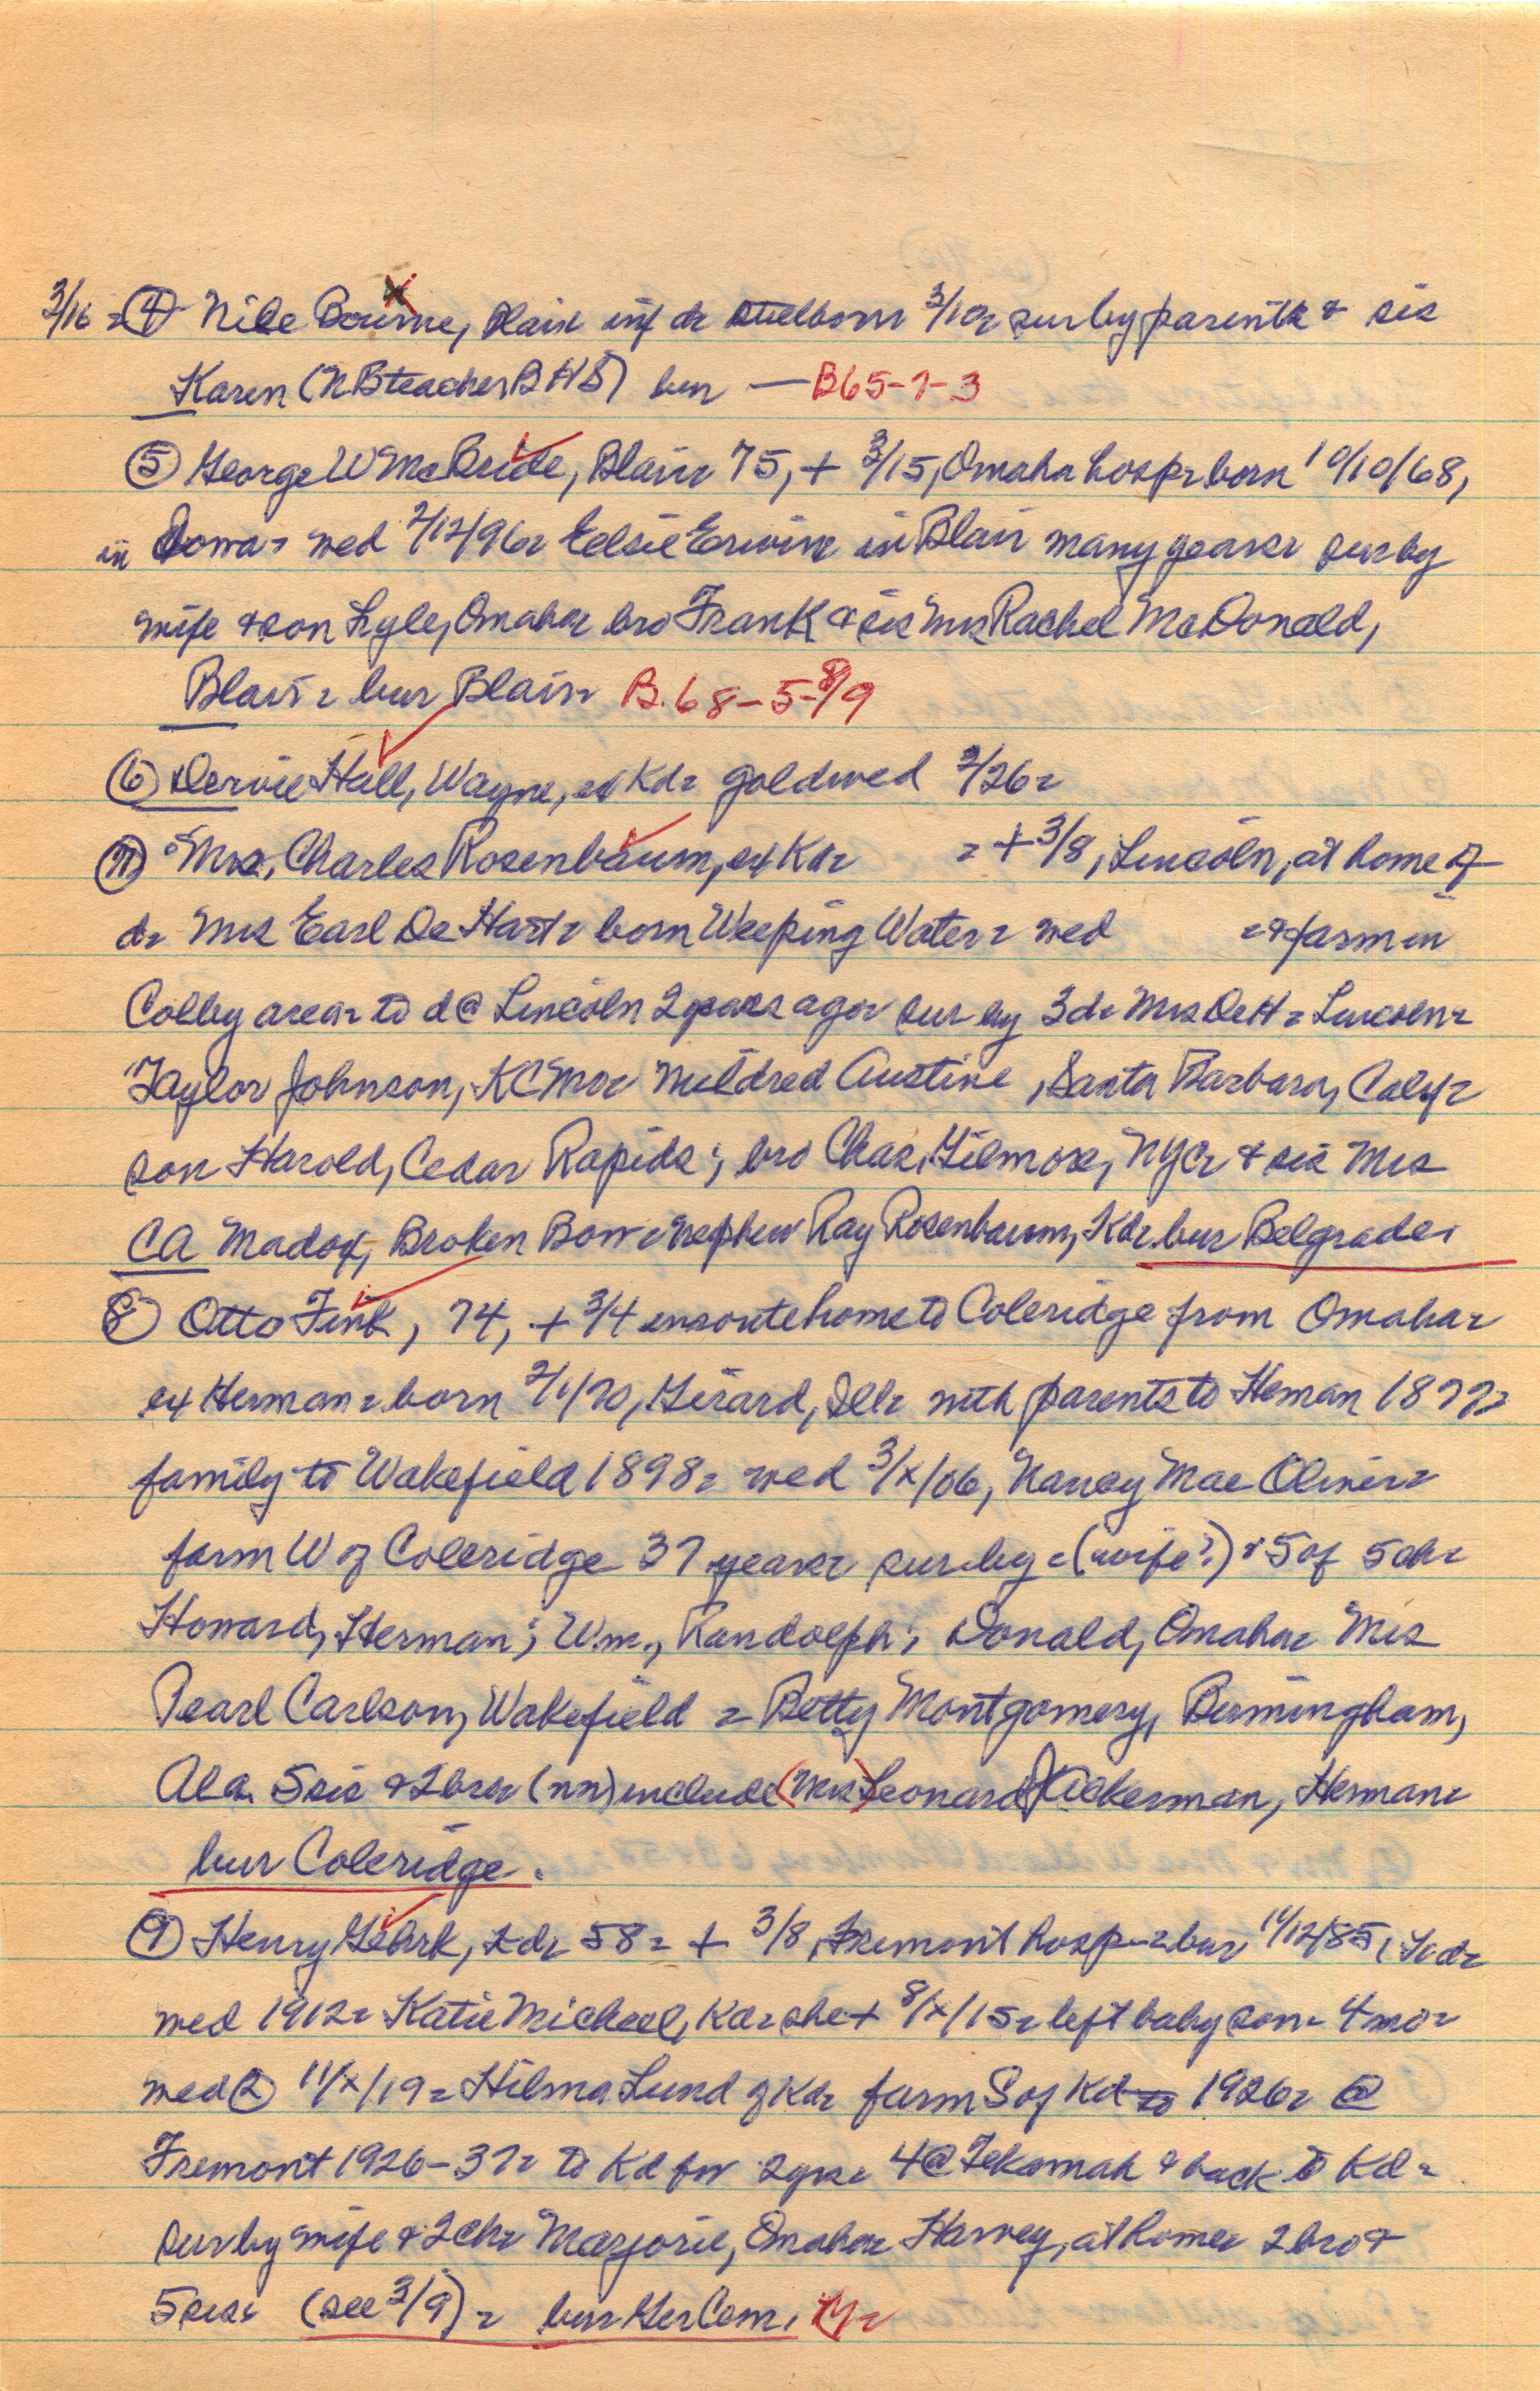 3/16 = ④ Nile Bourne, Blair inf dr stilborn 3/10 = sur by parents & sis
Karen (NB teacher BHS) bur — B65-7-3
⑤ George W McBride, Blair = 75, + 3/15, Omaha hosp = born 10/10/68,
in Iowa = wed 2/12/96 = Elsie Erwin = in Blair many years = sur by
wife & son Lyle, Omaha = bro Frank & sis Mrs Rachel McDonald,
Blair = bur Blair = B.68-5-8/9
⑥ Dervie Hall, Wayne, ex Kd = gold wed 2/26 =
⑦ Mrs. Charles Rosenbaum, ex Kd = = + 3/8, Lincoln, at home of
d = Mrs Earl De Hart = born Weeping Water = wed = & farm in
Colby area = to d @ Lincoln 2 years ago = sur by 3 d = Mrs DeH = Lincoln =
Taylor Johnson, KCMo = Mildred Austine, Santa Barbara, Calif =
son Harold, Cedar Rapids; bro Chas. Gilmore, NYC = & sis Mrs
CA Madox, Broken Bow = nephew Ray Rosenbaum, Kd = bur Belgrade.
⑧ Otto Fink, 74, + 3/4 enroute home to Coleridge from Omaha =
ex Herman = born 2/1/70, Girard, Ill = with parents to Heman 1877 =
family to Wakefield 1898 = wed 3/x/06, Nancy Mae Oliver =
farm W of Coleridge 37 years = sur by = (wife?) & 5 of 5 ch =
Howard, Herman; Wm., Randolph; Donald, Omaha = Mrs
Pearl Carlson, Wakefield = Betty Montgomery, Birmingham,
Ala. 5 sis & 2 bro = (nn) include (Mrs) Leonard Ackerman, Herman =
bur Coleridge.
⑨ Henry Gehrk, Kd = 58 = + 3/8, Fremont hosp = bur 11/12/85, Kd =
wed 1912 = Katie Micheel, Kd = she + 8/x/15 = left baby son = 4 mo =
wed ② 11/x/19 = Hilma Lund of Kd = farm S of Kd to 1926 = @
Fremont 1926-37 = to Kd for 2 yrs = 4 @ Tekamah & back to Kd =
sur by wife & 2 ch = Marjorie, Omaha = Harvey, at home = 2 bro &
5 sis = (see 3/9) = bur Ger Cem.